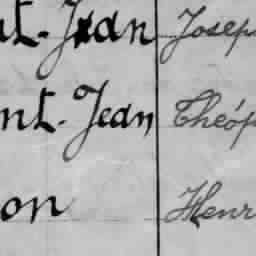 nt-Jean Josep
nt-Jean Théóp
on Henr